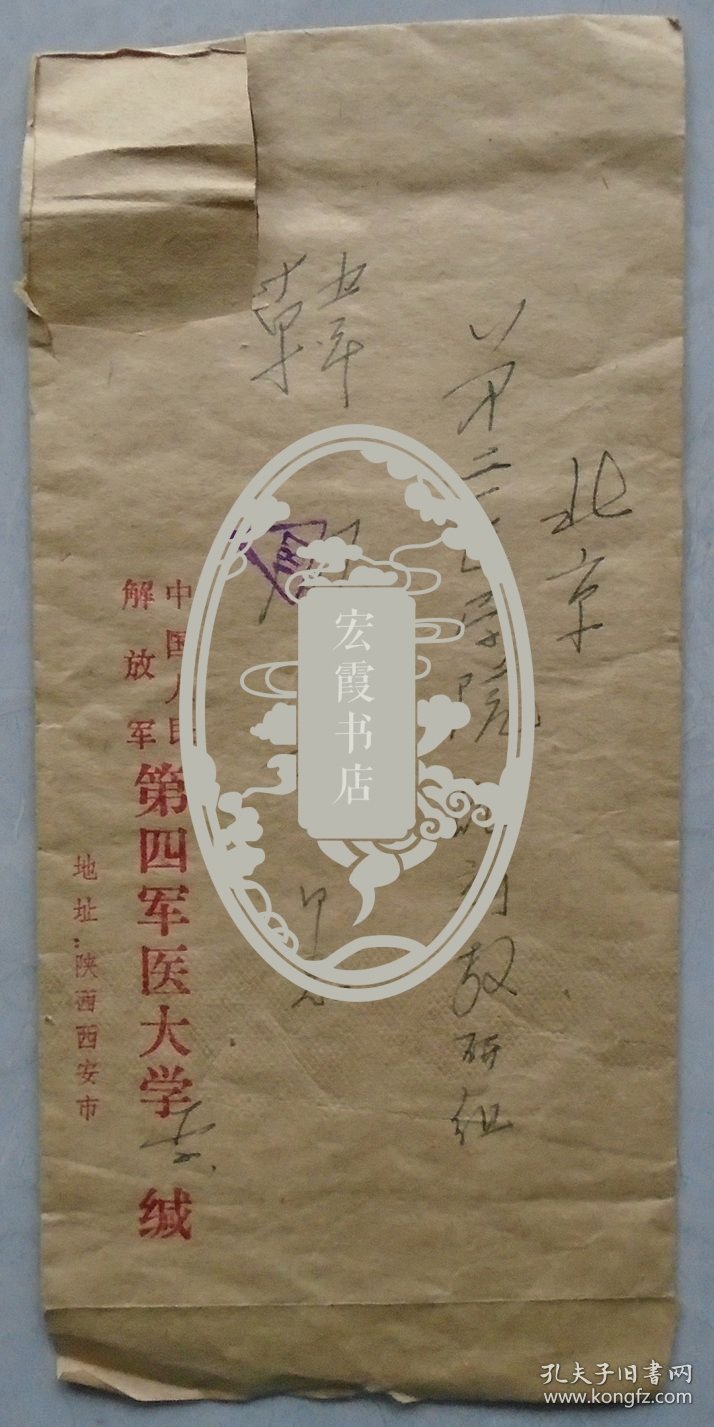 北京
第二医学院
教研组
韩
中国人民
解放军
第四军医大学 李 缄
地址:陕西西安市
宏霞书店
孔夫子旧书网
www.kongfz.com